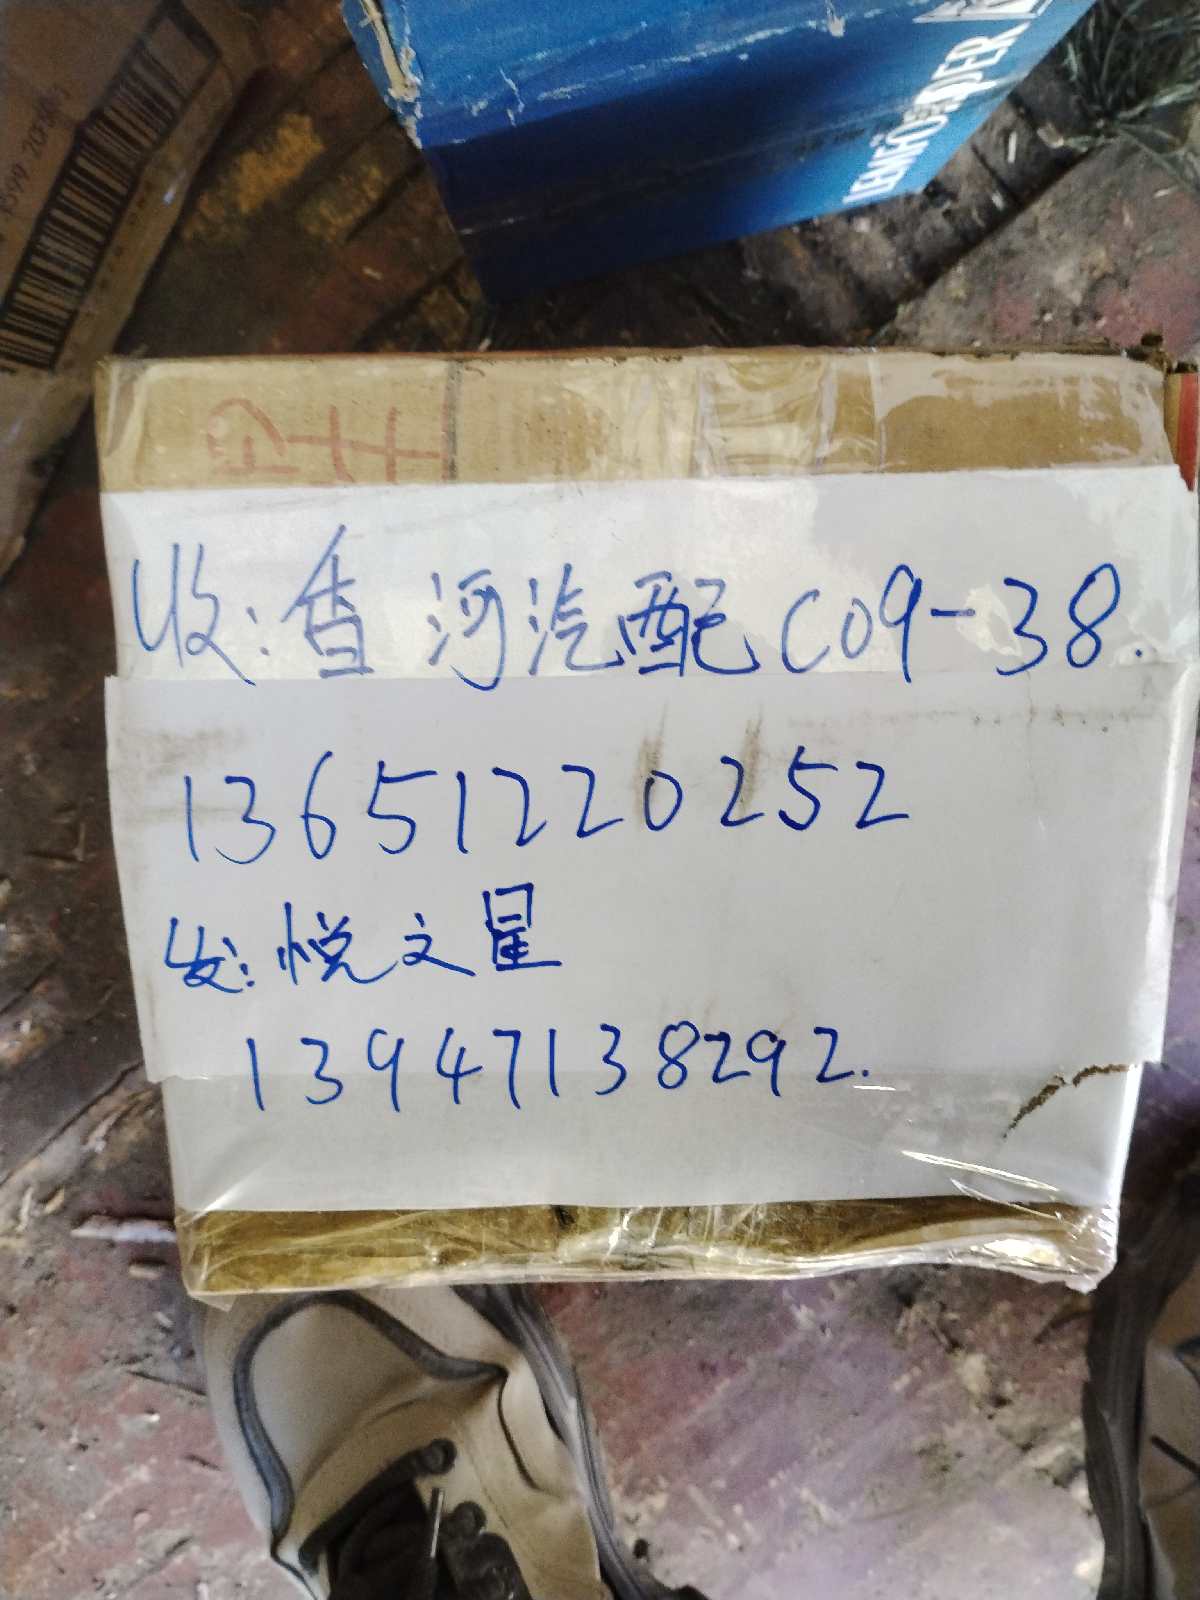 LEMFÖRDER
收:香河汽配C09-38.
13651220252
发:悦文星
13947138292.